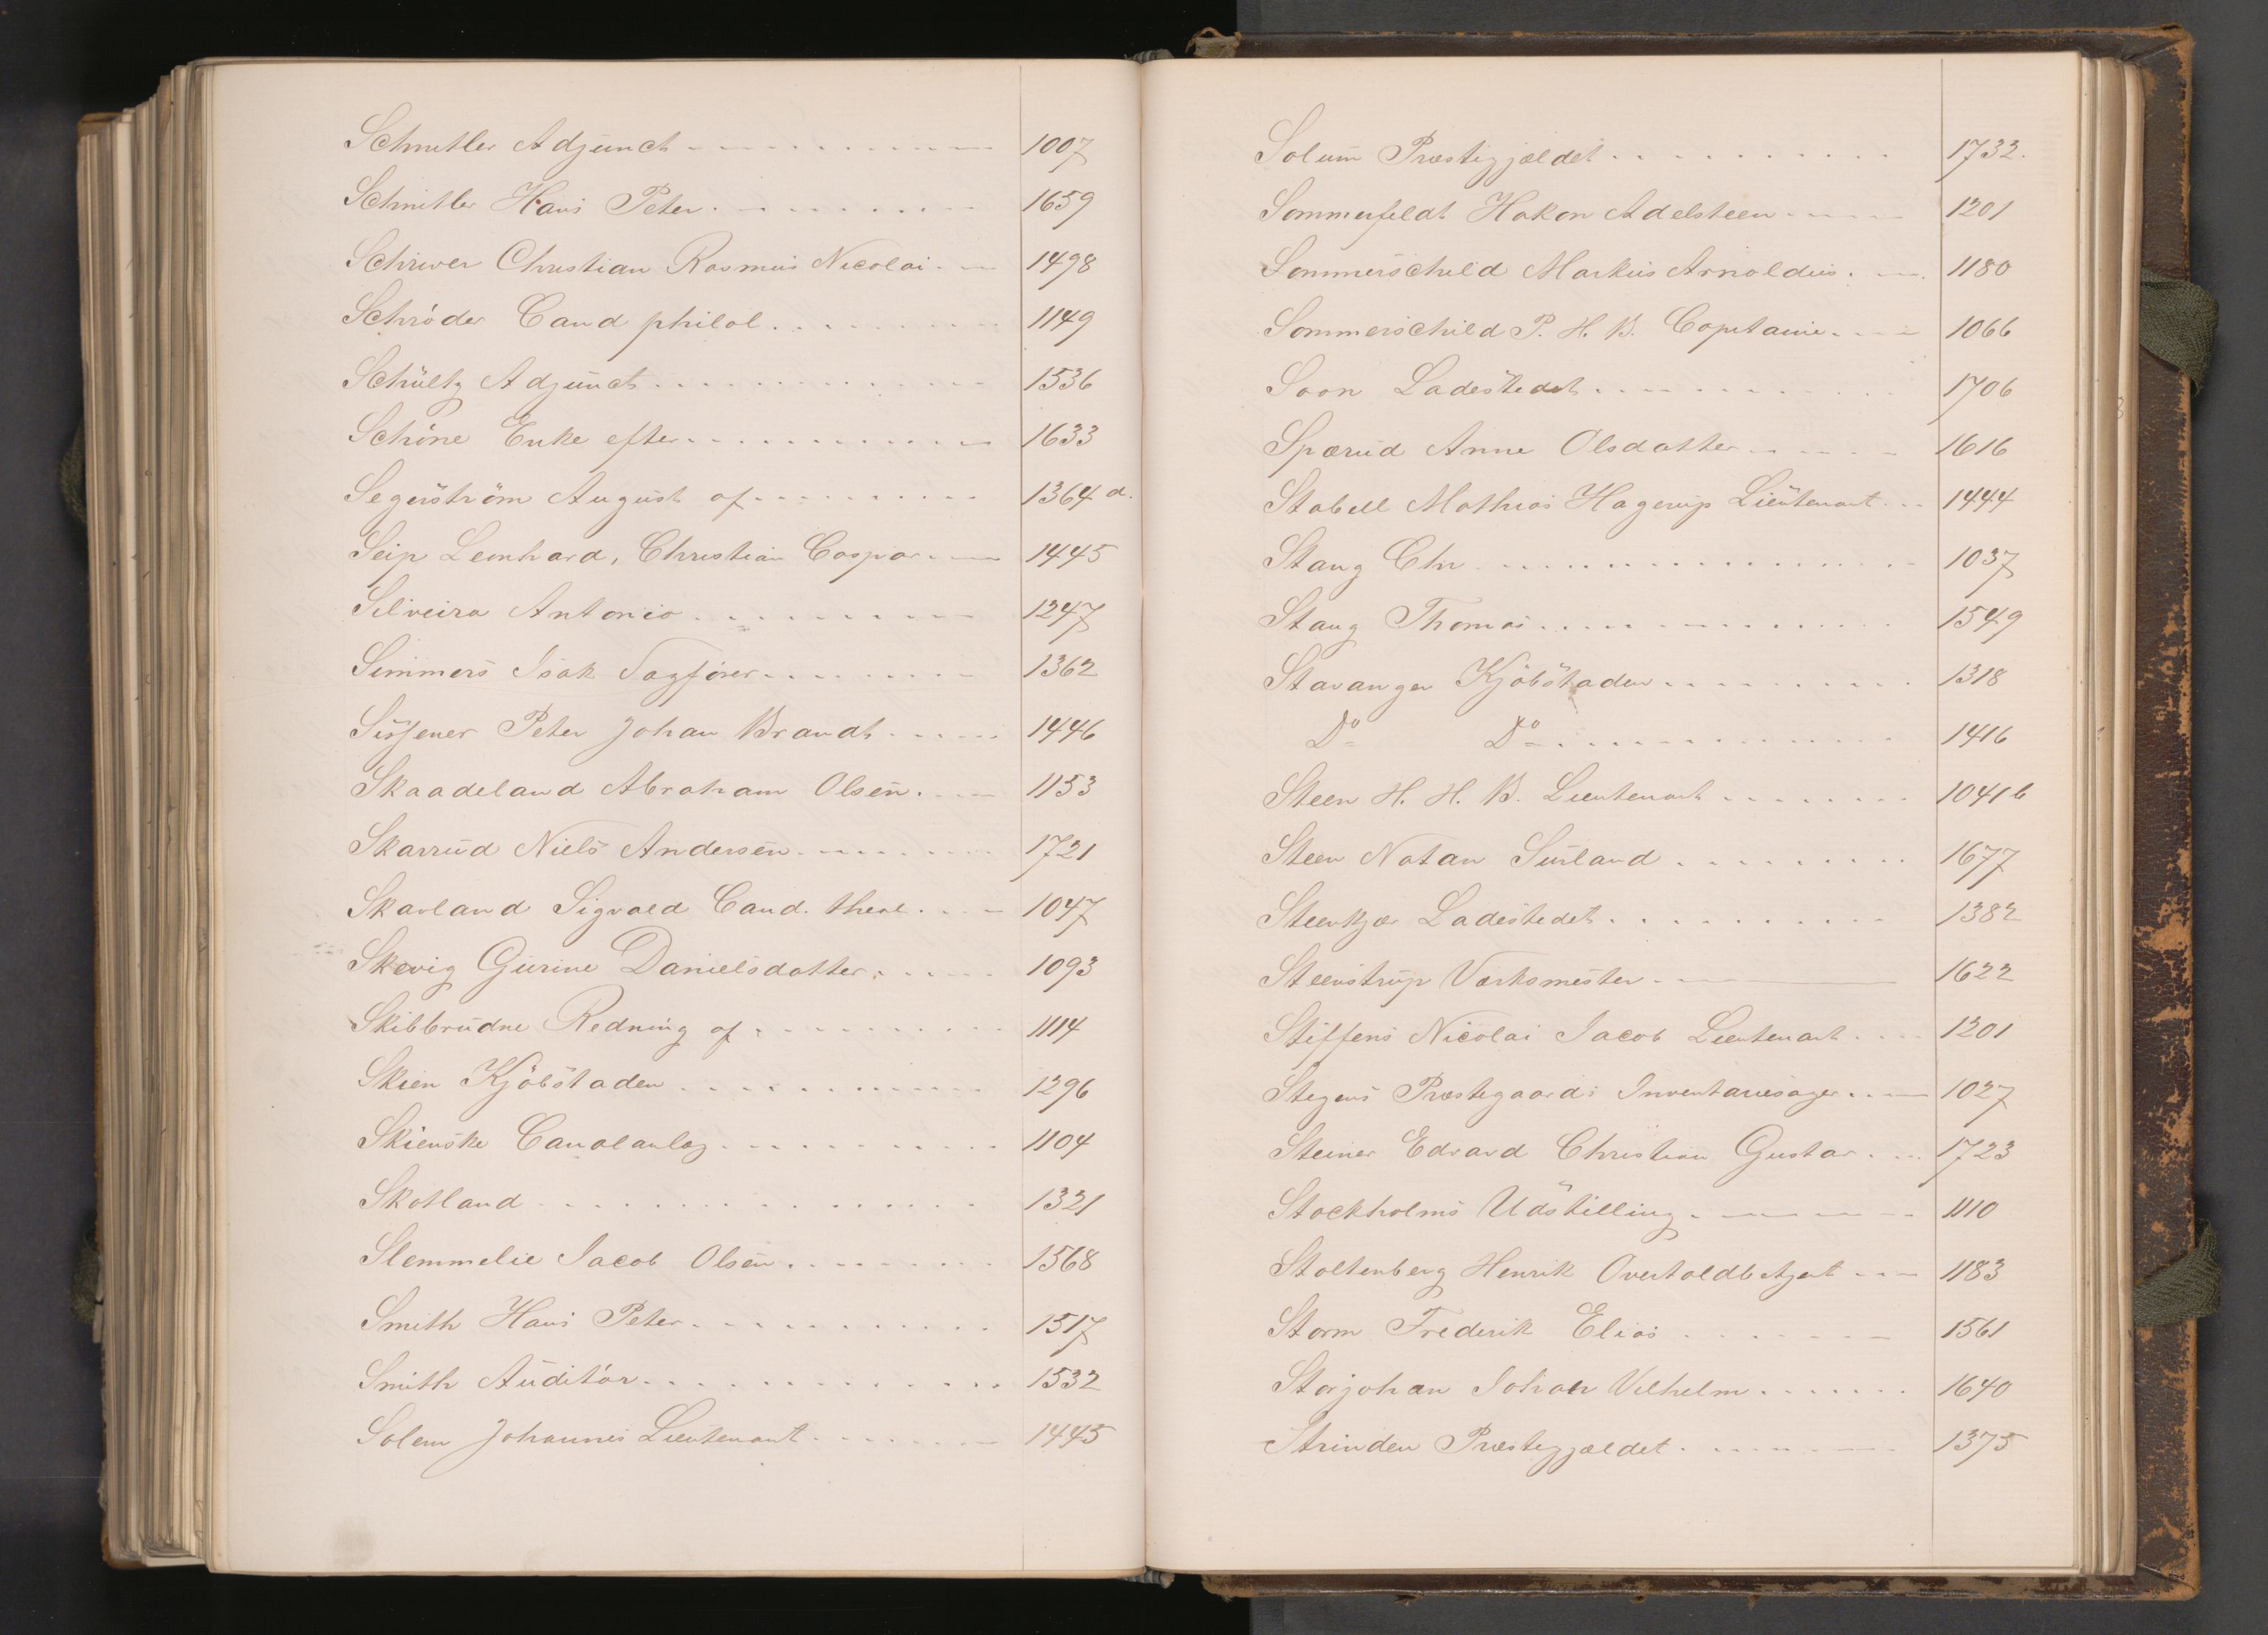 Schnitler Adjunct 1007
Schnitler Hans Peter 1659
Schriver Christian Rasmus Nicolai 1498
Schröder Cand philol. 1149
Schültz Adjunct 1536
Schöne Enke efter 1633
Segerström August af 1364 a.
Seip Leonhard, Christian Caspar 1445
Silveira Antonio 1247
Simmers Isak Sagfører 1362
Sissener Peter Johan Brandt 1446
Skaadeland Abraham Olsen 1153
Skarrud Niels Andersen 1721
Skavland Sigvald Cand. theol. 1047
Skevig Gurine Danielsdatter 1093
Skibbrudne Redning af 1114
Skien Kjöbstaden 1296
Skienske Canalanlæg 1104
Skotland 1321
Slemmelie Jacob Olsen 1568
Smith Hans Peter 1517
Smith Auditör 1532
Solem Johannes Lieutenant 1445
Solum Præstegjældet 1732.
Sommerfeldt Hakon Adelsteen 1201
Sommerschild Markus Arnoldus 1180
Sommerschild P. H. B. Capitaine 1066
Soon Ladestedet 1706
Spærud Anne Olsdatter 1616
Stabell Mathias Hagerup Lieutenant 1444
Stang Chr 1037
Stang Thomas 1549
Stavanger Kjöbstaden 1318
Do Do 1416
Steen H. H. B. Lieutenant 1041 b
Steen Natan Surland 1677
Steenkjær Ladestedet 1382
Steenstrup Værksmester 1622
Stiffens Nicolai Jacob Lieutenant 1201
Stegens Præstegaards Inventariesager 1027
Steiner Edvard Christian Gustav 1723
Stockholms Udstilling 1110
Stoltenberg Henrik Overtoldbetjent 1183
Storm Frederik Elias 1561
Storjohan Johan Vilhelm 1640
Strinden Præstegjældet 1375